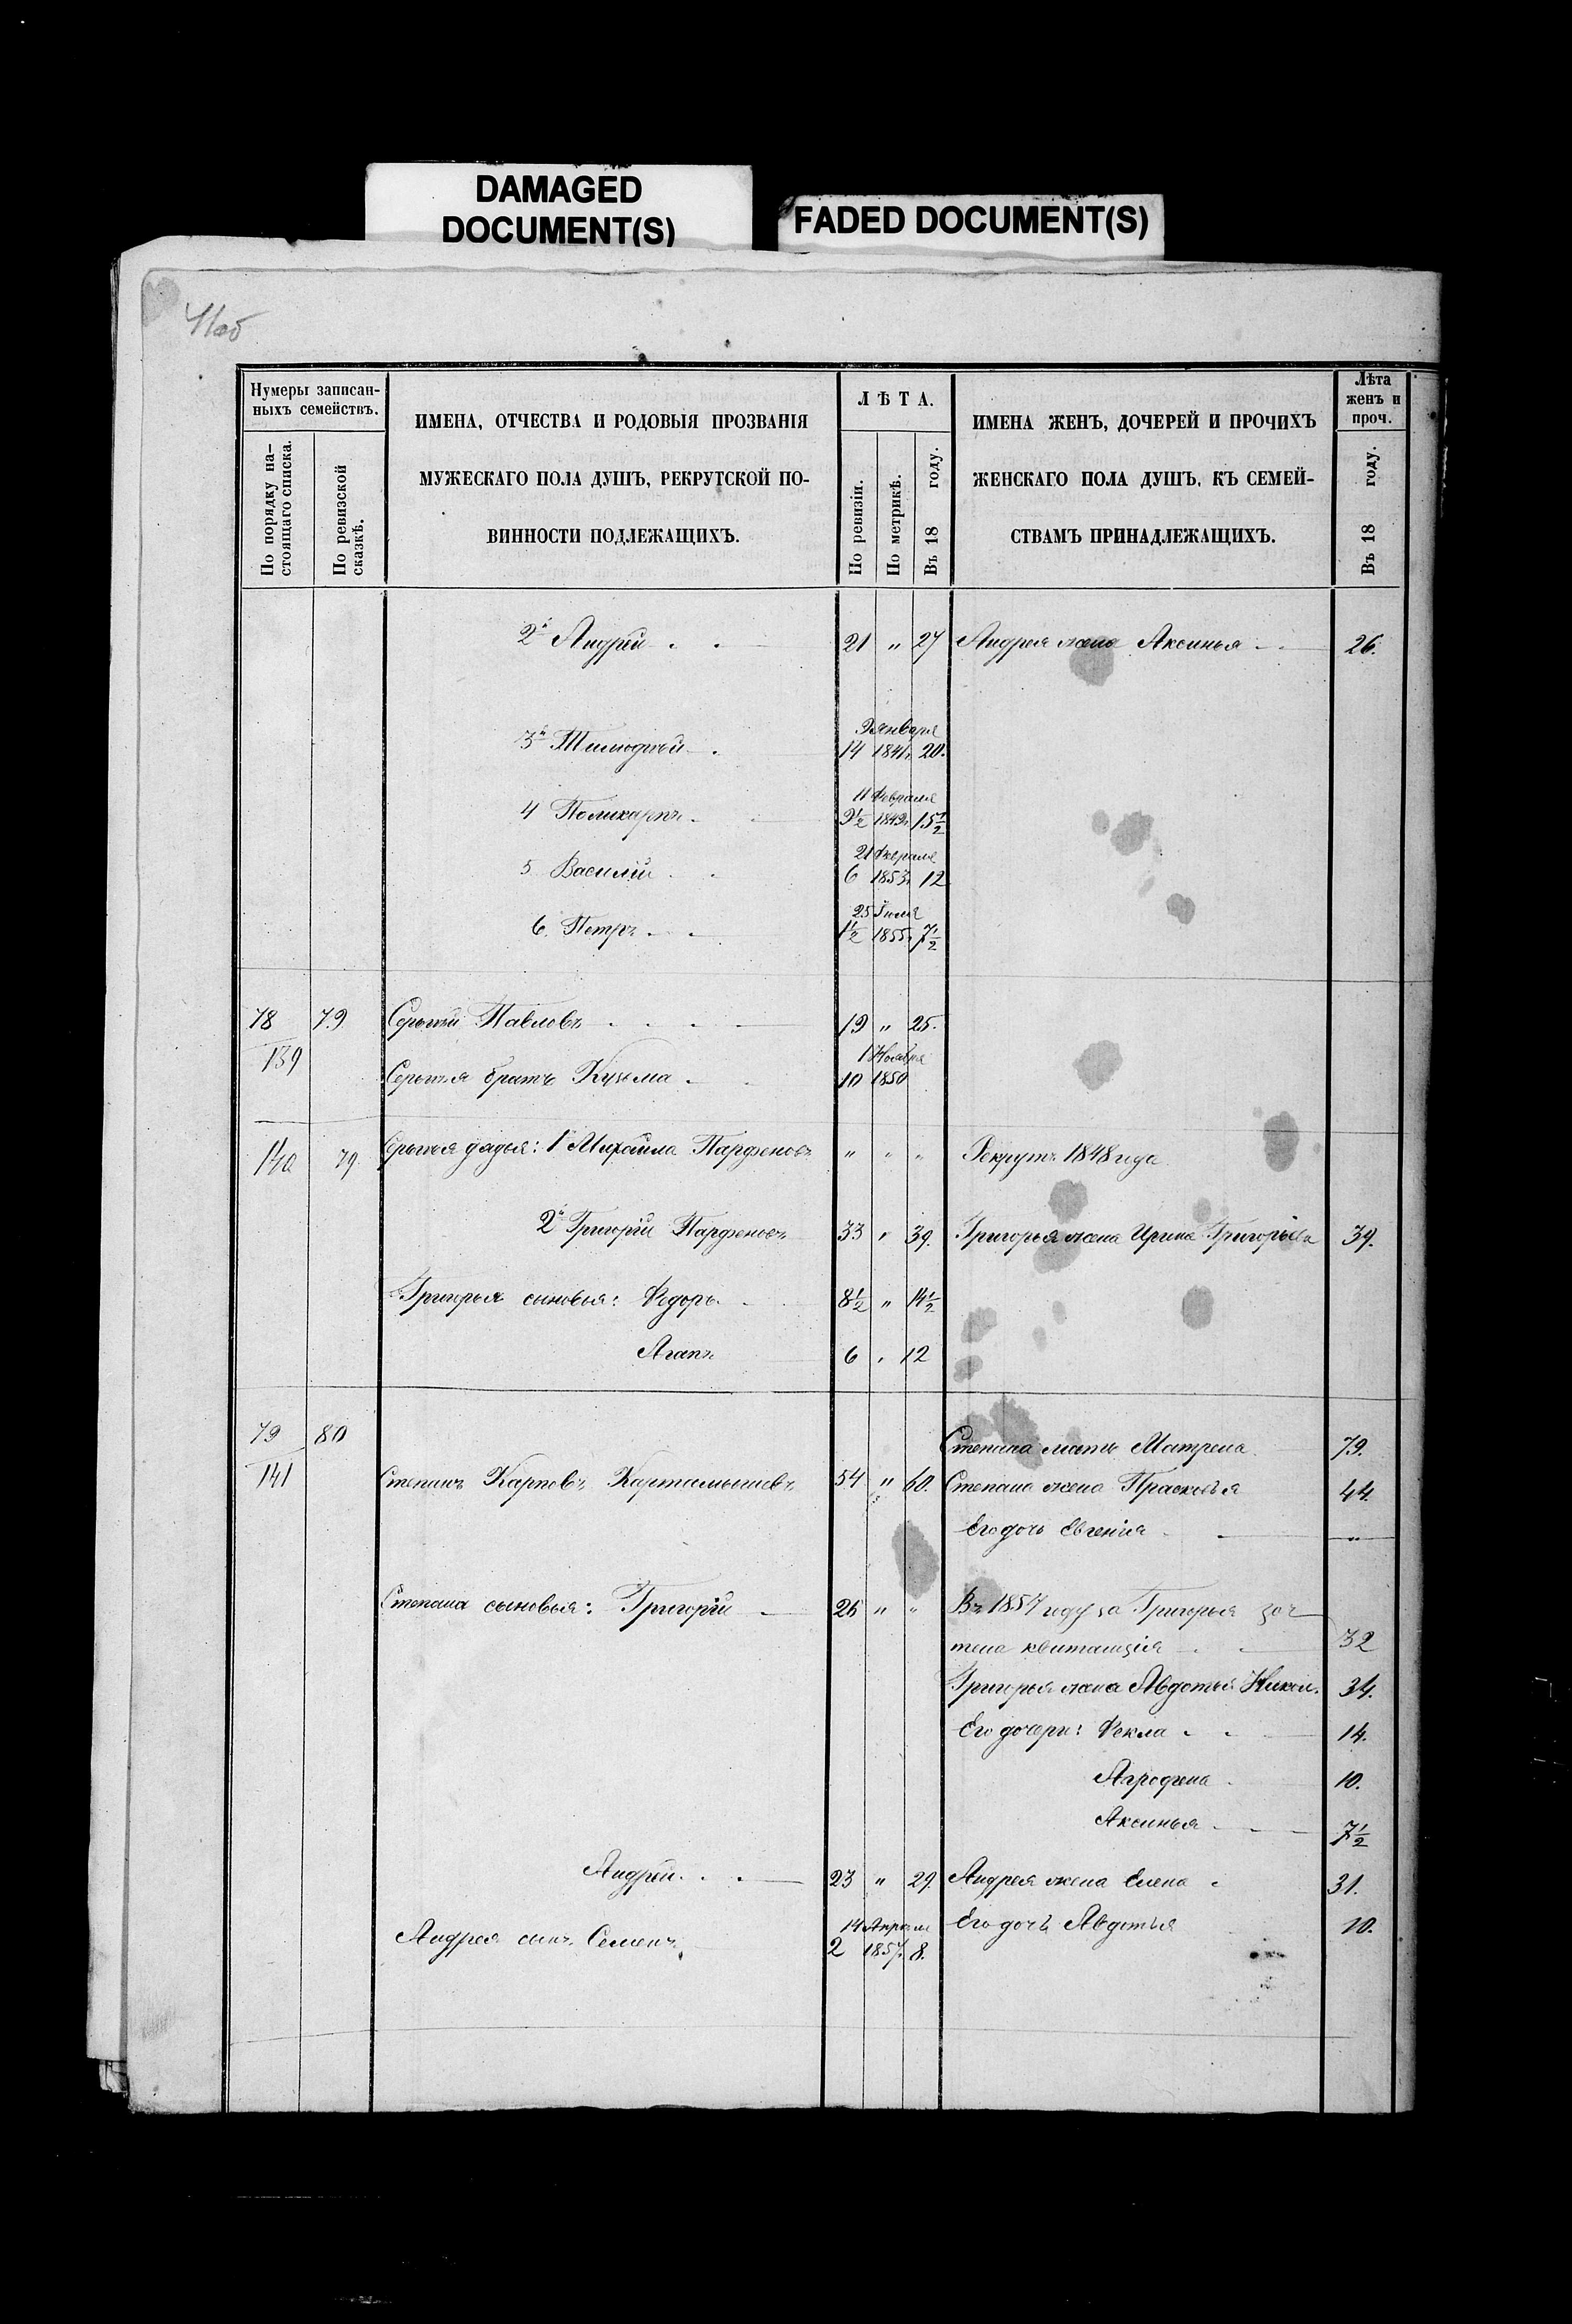 DAMAGED
DOCUMENT(S)
FADED DOCUMENT(S)
41об
Нумеры записан-
ныхъ семействъ.
По порядку на-
стоящаго списка.
По ревизской
сказкѣ.
ИМЕНА, ОТЧЕСТВА И РОДОВЫЯ ПРОЗВАНІЯ
МУЖЕСКАГО ПОЛА ДУШЪ, РЕКРУТСКОЙ ПО-
ВИННОСТИ ПОДЛЕЖАЩИХЪ.
ЛѢТА.
По ревизіи.
По метрикѣ.
Въ 18 году.
ИМЕНА ЖЕНЪ, ДОЧЕРЕЙ И ПРОЧИХЪ
ЖЕНСКАГО ПОЛА ДУШЪ, КЪ СЕМЕЙ-
СТВАМЪ ПРИНАДЛЕЖАЩИХЪ.
Лѣта
женъ и
проч.
Въ 18 году.
2й Андрей 21 " 27 Андрея жена Аксинья 26.
9 января
3й Тимофѣй 14 1841г. 20.
11 Февраля
4 Поликарпъ 9½ 1849г. 15½
21 Февраля
5 Василій 6 1853г. 12
25 Іюля
6. Петръ 1½ 1855г. 7½
78 79 Сергѣй Павловъ 19 " 25.
139 1 Ноября
Сергѣя братъ Кузьма 10 1850
140 79 Сергѣя дядья: 1й Михайла Парфеновъ " " " Рекрутъ 1848 года
2й Григорій Парфеновъ 33 " 39. Григорья жена Ирина Григорьева 39.
Григорья сыновья: Федоръ 8½ " 14½
Агапъ 6 " 12
79 80 Степана мать Матрена 79.
141 Степанъ Карповъ Картамышевъ 54 " 60. Степана жена Прасковья 44.
Его дочь Евгенія "
Степана сыновья: Григорій 26 " " Въ 1854 году за Григорья зач
тена квитанція 32
Григорья жена Авдотья Никол. 34.
Его дочери: Фекла 14.
Агрофена 10.
Аксинья 7½
Андрей 23 " 29. Андрея жена Елена 31.
14 Апреля Его дочь Авдотья 10.
Андрея сынъ Семенъ 2 1857. 8.